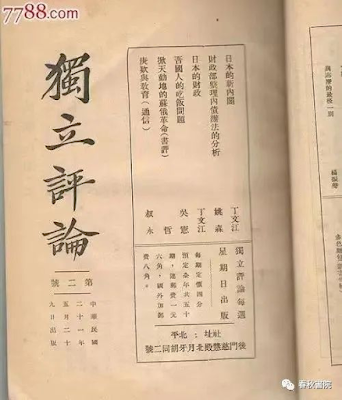 7788.com
日本的新內閣 丁文江
財政部整理內債辦法的分析 姚森
日本的財政 丁文江
吾國人的吃飯問題 吳憲
掀天動地的蘇俄革命(書評) 哲
庚款與教育(通信) 叔永
獨立評論每逢
星期日出版
每期定價四分
預定全年共五十
期,連郵費一元
六角,國外加郵
費八角。
社址:北平
後門慈慧殿北月牙胡同二號
獨立評論
第二號
中華民國
二十一年
五月二十
九日出版
春秋書院